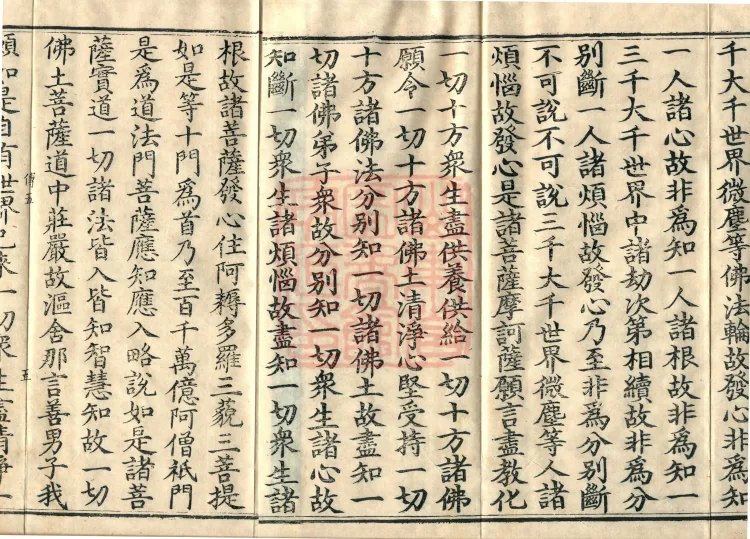 千大千世界微塵等佛法輪故發心非爲知
一人諸心故非爲知一人諸根故非爲知一
三千大千世界中諸劫次第相續故非爲分
別斷一人諸煩惱故發心乃至非爲分別斷
不可說不可說三千大千世界微塵等人諸
煩惱故發心是諸菩薩摩訶薩願言盡教化
一切十方衆生盡供養供給一切十方諸佛
願令一切十方諸佛土清淨心堅受持一切
十方諸佛法分別知一切諸佛土故盡知一
切諸佛弟子衆故分別知一切衆生諸心故
知斷一切衆生諸煩惱故盡知一切衆生諸
根故諸菩薩發心住阿耨多羅三藐三菩提
如是等十門爲首乃至百千萬億阿僧祇門
是爲道法門菩薩應知應入略說如是諸菩
薩實道一切諸法皆入皆知智慧知故一切
佛土菩薩道中莊嚴故漚舍那言善男子我
傅五
五
願如是自有世界已來一切衆生盡清淨一